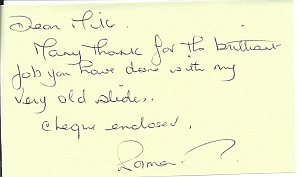 Dear Mike.
Many thanks for the brilliant
job you have done with my
very old slides.
Cheque enclosed.